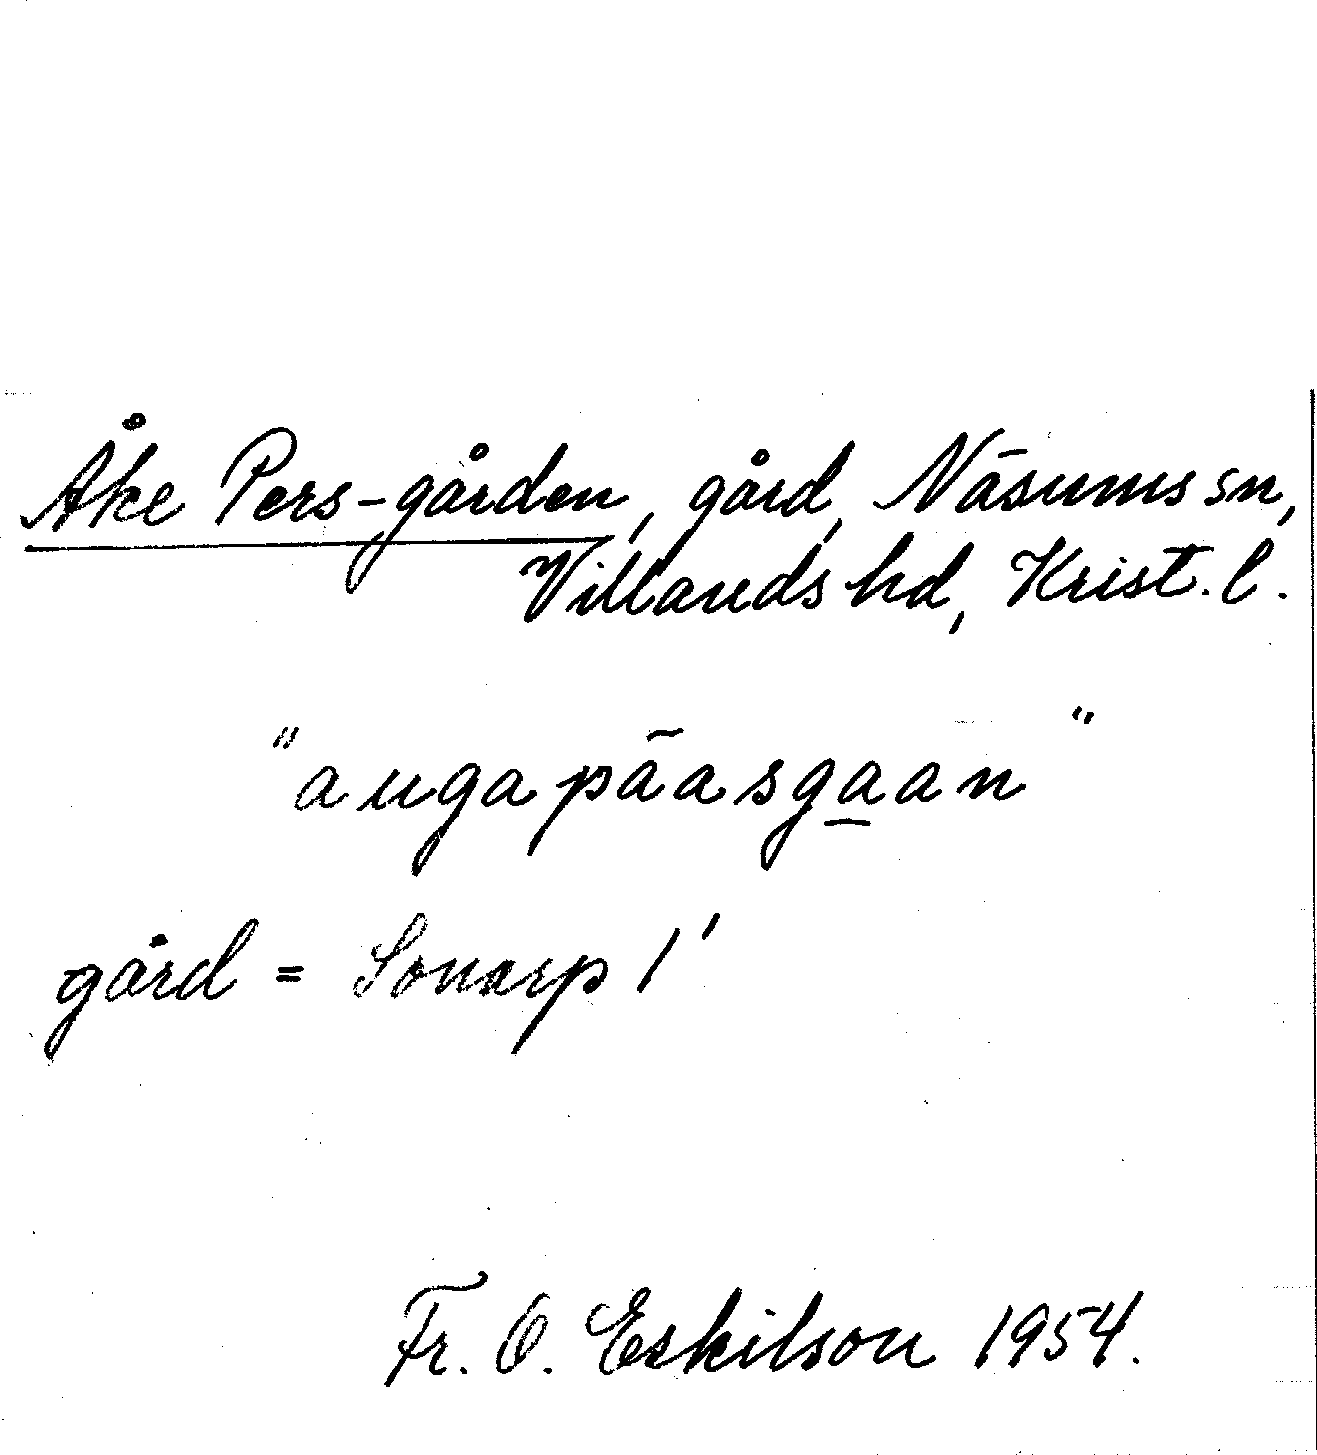 Åke Pers-gården, gård, Näsums sn,
Villands hd, Krist. l.
"augapäasgaan"
gård = Sonarp 1'
Fr. O. Eskilson 1954.